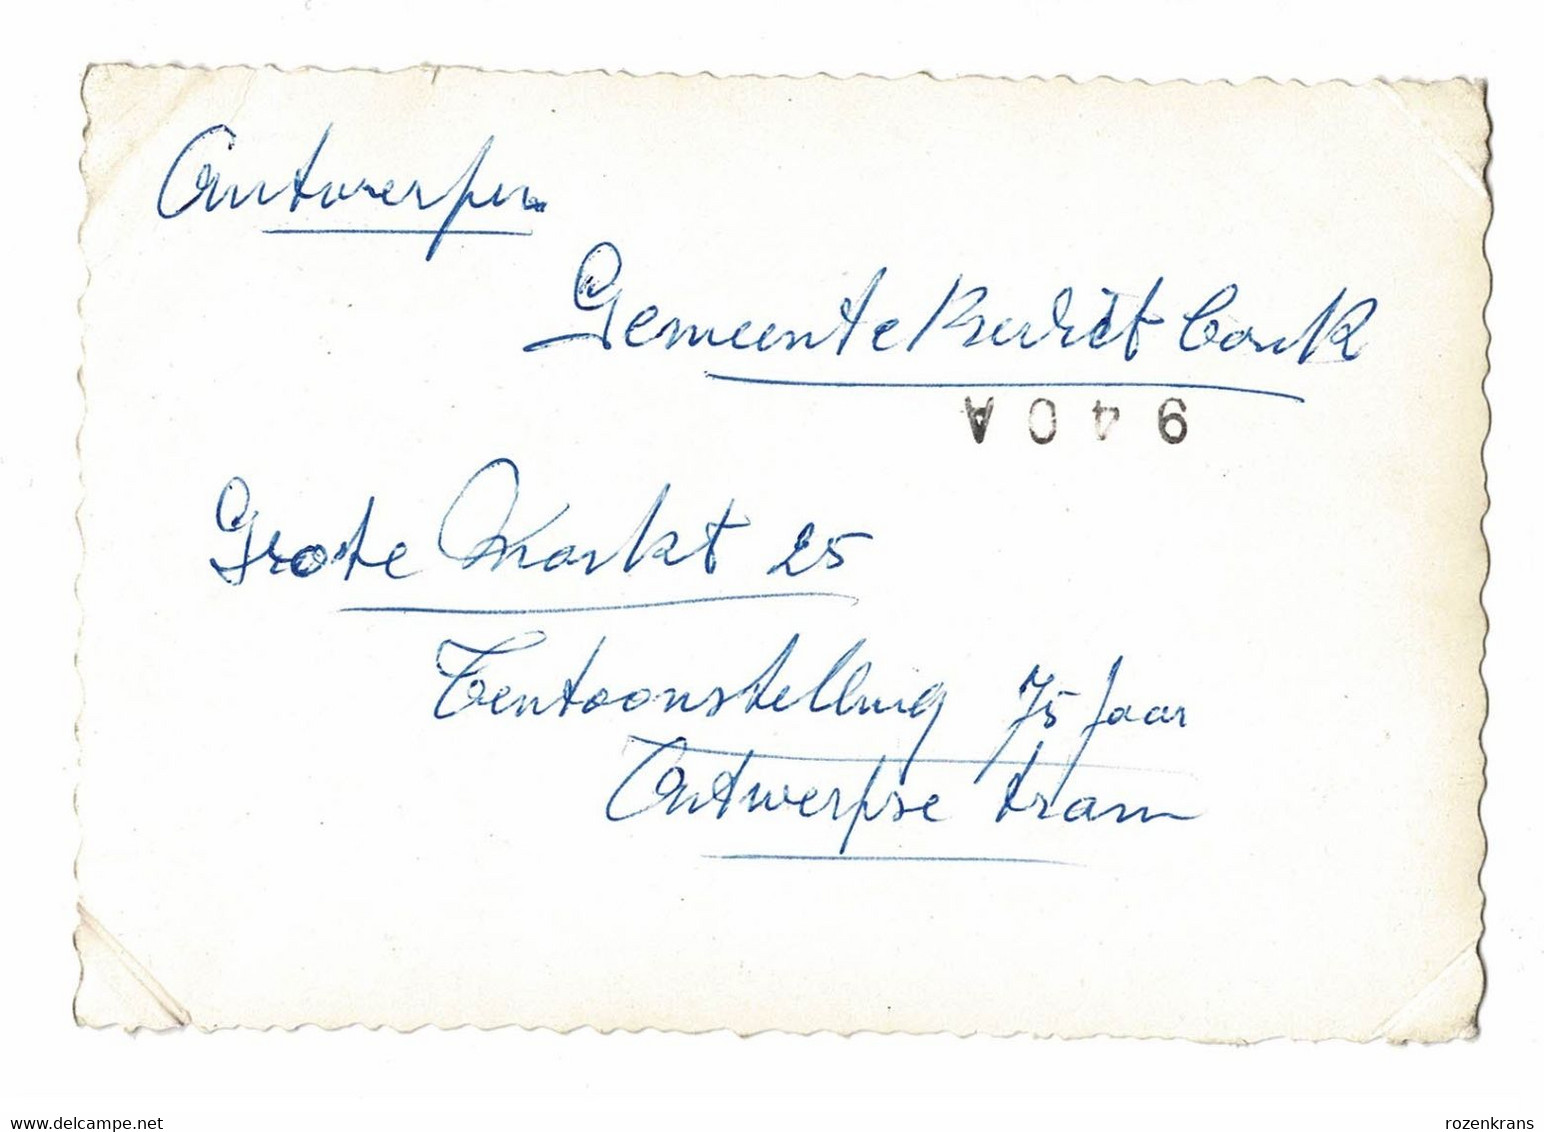 Antwerpen
Gemeentekrediet bank
940A
Grote Markt 25
Tentoonstelling 75 jaar
Antwerpse tram
www.delcampe.net
rozenkrans